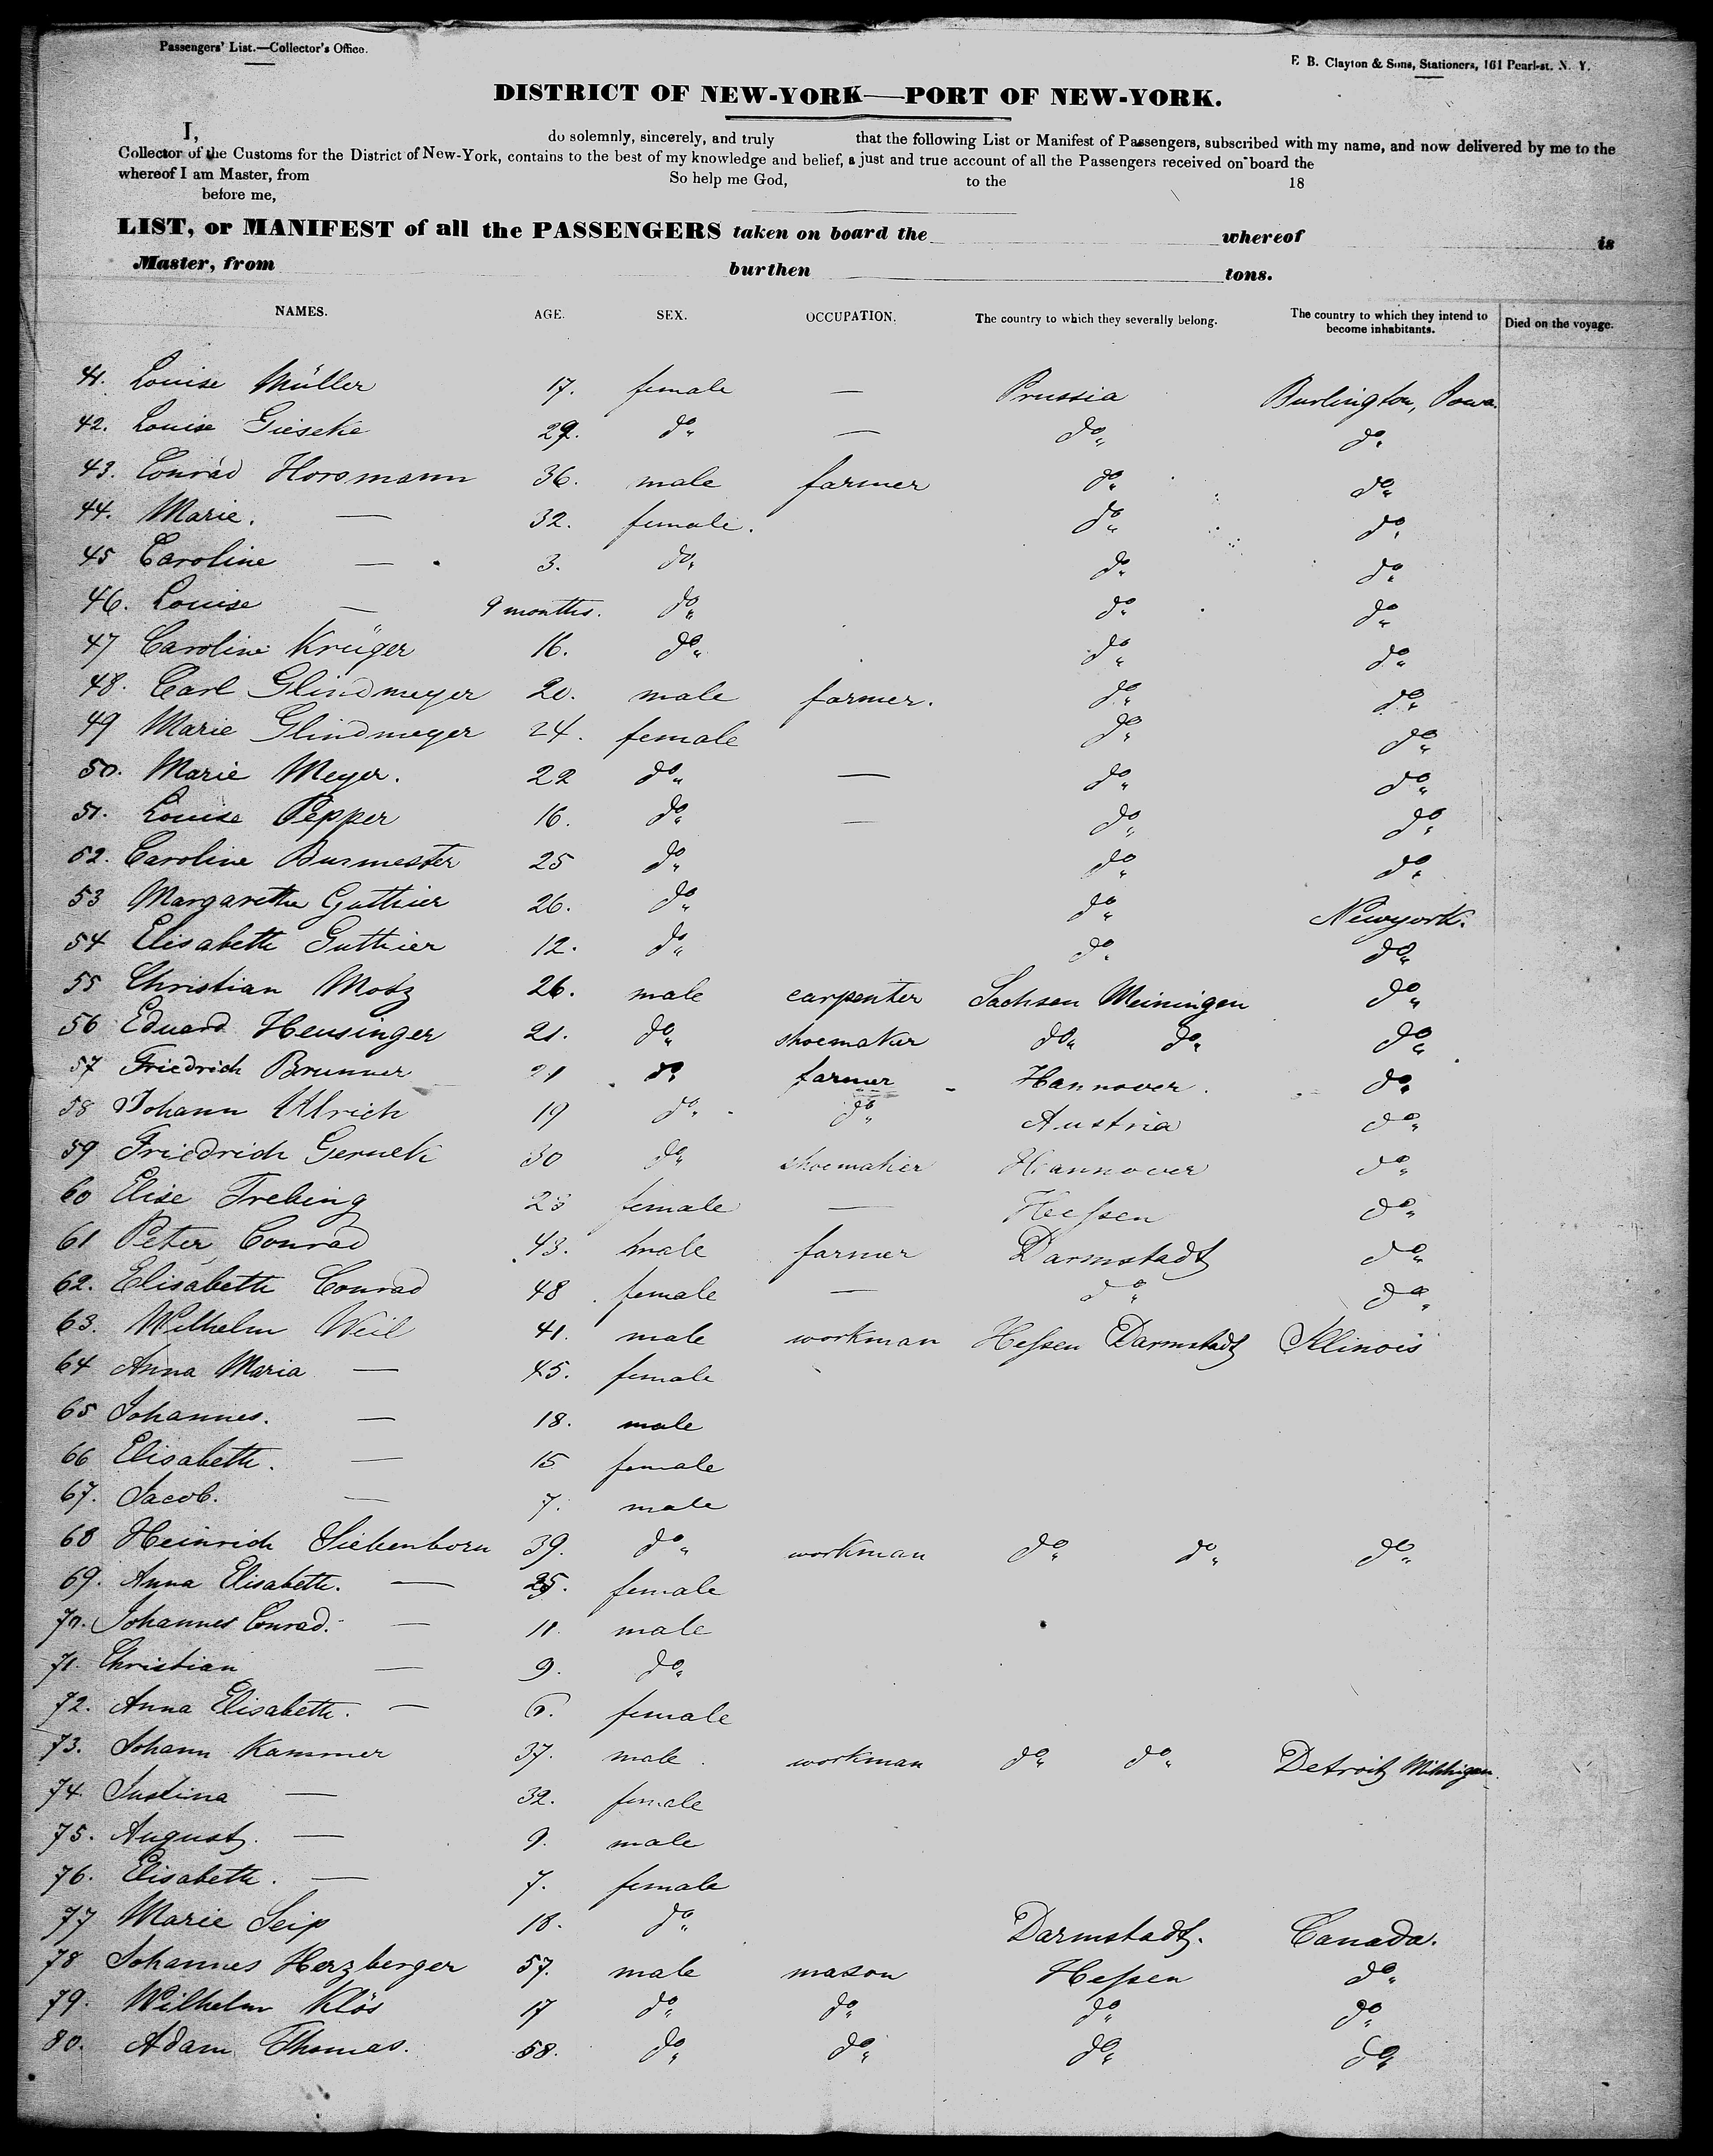 Passengers' List.—Collector's Office.
E. B. Clayton & Sons, Stationers, 161 Pearl-st. N. Y.
DISTRICT OF NEW-YORK—PORT OF NEW-YORK.
I, do solemnly, sincerely, and truly that the following List or Manifest of Passengers, subscribed with my name, and now delivered by me to the
Collector of the Customs for the District of New-York, contains to the best of my knowledge and belief, a just and true account of all the Passengers received on board the
whereof I am Master, from to the 18
So help me God,
before me,
LIST, or MANIFEST of all the PASSENGERS taken on board the whereof is
Master, from burthen tons.
NAMES. AGE. SEX. OCCUPATION. The country to which they severally belong. The country to which they intend to become inhabitants. Died on the voyage.
41. Louise Müller 17. female — Prussia Burlington, Iowa.
42. Louise Gieseke 29. do — do do
43. Conrad Horsmann 36. male farmer do do
44. Marie. — 32. female. do do
45 Caroline — 3. do do do
46. Louise — 9 months. do do do
47 Caroline Krüger 16. do do do
48. Carl Glindmeyer 20. male farmer. do do
49 Marie Glindmeyer 24. female do do
50. Marie Meyer. 22 do — do do
51. Louise Pepper 16. do — do do
52. Caroline Burmester 25 do do do
53 Margarethe Guthier 26. do do Newyork.
54 Elisabeth Guthier 12. do do do
55 Christian Motz 26. male carpenter Sachsen Meiningen do
56 Eduard Heusinger 21. do shoemaker do do do
57 Friedrich Brunner 21 do farmer Hannover. do
58 Johann Ullrich 19 do do Austria do
59 Friedrich 30 do shoemaker Hannover do
60 Elise Trebing 23 female — Hessen do
61 Peter Conrad 43. male farmer Darmstadt do
62. Elisabeth Conrad 48 female — do do
63. Wilhelm Weil 41. male workman Hessen Darmstadt Illinois
64 Anna Maria — 45. female
65 Johannes. — 18. male
66 Elisabeth. — 15 female
67. Jacob. — 7. male
68 Heinrich Siebenborn 39. do workman do do do
69. Anna Elisabeth. — female
70. Johannes Conrad. — 11. male
71. Christian — 9. do
72. Anna Elisabeth. — 6. female
73. Johann Kammer 37. male. workman do do Detroit Michigan.
74. Justina — 32. female
75. August. — 9. male
76. Elisabeth. — 7. female
77 Marie Seip 18. do Darmstadt. Canada.
78 Johannes Herzberger 57. male mason Hessen do
79. Wilhelm Klös 17 do do do do
80. Adam Thomas. 58. do do do do